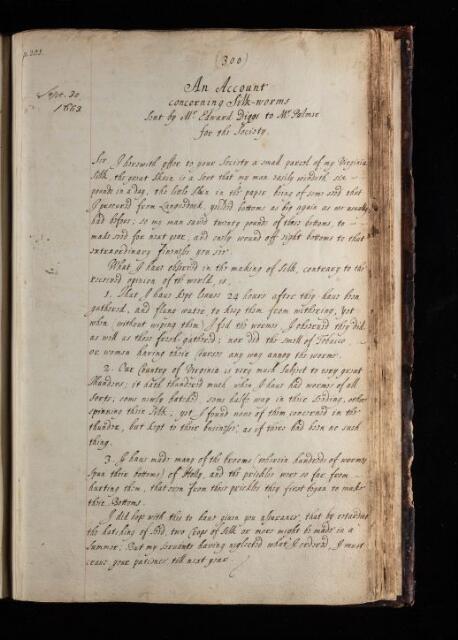 (300)
Sept. 30.
1663
An Account
concerning Silk-worms
Sent by Mr. Edward Diggs to Mr. Palmer
for the Society.
Sir, I herewith offer to your Society a small parcel of my Virginia
Silk, the great Skein is a sort that my man easily windeth six
pounds in a day, the little Skin in the paper being of some seed that
I procured from Languedock, yeilded bottoms as big again as we usually
had before; so my man saved twenty pounds of those bottoms, to
made seed for next year, and only wound off eight bottoms to that
extraordinary fineness you see.
What I have observed in the making of Silk, contrary to the
received opinion of the world, is,
1. That I have kept leaves 24 hours after they have been
gathered, and flung water, to keep them from withering, yet
when without wiping them I fed the worms, I observed they did
as well as those fresh gathered; nor did the smell of Tobacco
or women having their Courses any way annoy the worme.
2. Our Country of Virginia is very much Subject to very great
Thunders; it hath thundered much when I have had wormes of all
sorts; some newly hatched, some halfe way in their feeding, others
spinning their Silk; yet I found none of them concerned in the
thunder, but kept to their business, as if there had been no such
thing.
3. I have made many of the brooms (wherein hundreds of worms
spun their bottoms) of Holly, and the prickles were so far from
hurting them, that even from those prickles they first began to make
their Bottoms.
I did hope with this to have given you assurance, that by retarding
the hatching of seed, two Crops of Silk or more might be made in a
Summer; But my servants having neglected what I ordered, I must
crave your patience till next year.